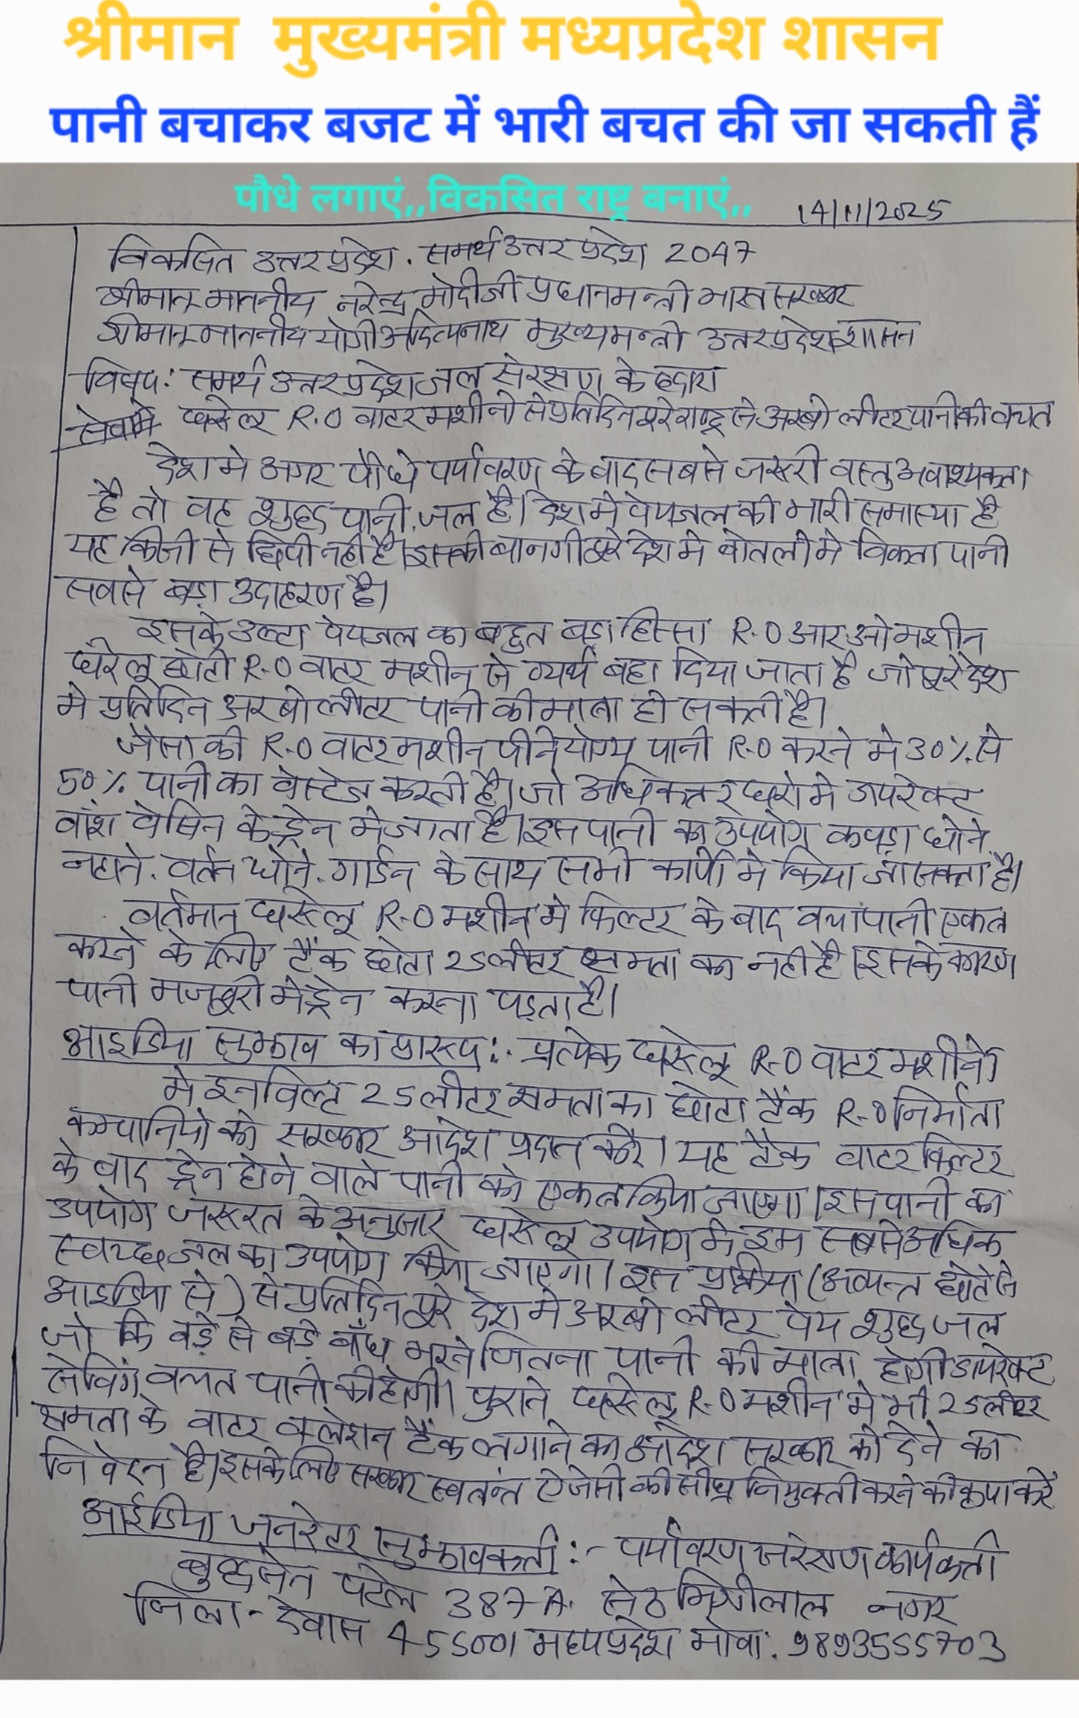 श्रीमान मुख्यमंत्री मध्यप्रदेश शासन
पानी बचाकर बजट में भारी बचत की जा सकती हैं
पौधे लगाएं,,विकसित राष्ट्र बनाएं,,
14/11/2025
विकसित उत्तर प्रदेश. समर्थ उत्तर प्रदेश 2047
श्रीमान माननीय नरेन्द्र मोदीजी प्रधानमन्त्री भारत सरकार
श्रीमान माननीय योगी आदित्यनाथ मुख्यमन्ती उत्तर प्रदेश शासन
विषय: समर्थ उत्तर प्रदेश जल संरक्षण के द्वारा
घरेलू R.O वाटर मशीनो से प्रतिदिन पूरे राष्ट्र से अरबो लीटर पानी की बचत
देश मे अगर पौधे पर्यावरण के बाद सबसे जरूरी वस्तु अवाश्यकता
है तो वह शुद्ध पानी.जल है। देश मे पेयजल की भारी समास्या है
यह किसी से छिपी नही है। इसकी बानगी पूरे देश मे बोतलो मे विकता पानी
सबसे बड़ा उदाहरण है।
इसके उल्टा पेयजल का बहुत बड़ा हिस्सा R.O आर ओ मशीन
घरेलू छोटी R.O वाटर मशीन से व्यर्थ बहा दिया जाता है जो पूरे देश
मे प्रतिदिन अरबो लीटर पानी की मात्रा हो सकती है।
जैसा की R.O वाटर मशीन पीने योग्य पानी R.O करने मे 30% से
50% पानी का वेस्टेज करती है। जो अधिकतर घरो मे डायरेक्ट
वॉश वेसिन के ड्रेन मे जाता है। इस पानी का उपयोग कपड़ा धोने.
नहाने. वर्तन धोने. गार्डन के साथ सभी कार्यो मे किया जा सकता है।
वर्तमान घरेलू R.O मशीन मे फिल्टर के बाद बचा पानी एकत
करने के लिए टैंक छोटा 25 लीटर क्षमता का नही है। इसके कारण
पानी मजबूरी मे ड्रेन करना पड़ता है।
आइडिया सुझाव का प्रारूप:- प्रत्येक घरेलू R.O वाटर मशीनो
मे इनविल्ट 25 लीटर क्षमता का छोटा टैंक R.O निर्माता
कम्पानियो को सरकार आदेश प्रदान करे। यह टैंक वाटर फिल्टर
के बाद ड्रेन होने वाले पानी को एकत किया जाएगा। इस पानी का
उपयोग जरूरत के अनुसार घरेलू उपयोग मे हम सबसे अधिक
स्वच्छ जल का उपयोग किया जाएगा। इस प्रक्रिया (अत्यन्त छोटे से
आइडिया से) से प्रतिदिन पूरे देश मे अरबो लीटर पेय शुद्ध जल
जो कि बड़े से बड़े बाँध भरने जितना पानी की मात्रा होगी डायरेक्ट
सेविंग बचत पानी की होगी। पुराने घरेलू R.O मशीन मे भी 25 लीटर
क्षमता के वाटर क्लेशन टैंक लगाने का आदेश सरकार को देने का
निवेदन है। इसके लिए सरकार स्वतंन्त ऐजेंसी की सीघ्र नियुक्ती करने की कृपा करें
आईडिया जनरेटर सुझावकर्ता:- पर्यावरण संरक्षण कार्यकर्ता
बुद्धसेन पटेल 387-A. सेठ मिश्रीलाल नगर
जिला- देवास 455001 मध्यप्रदेश मोबा: 9893555703